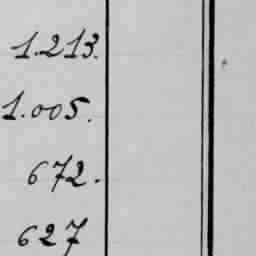 1.213.
1.005.
672.
627